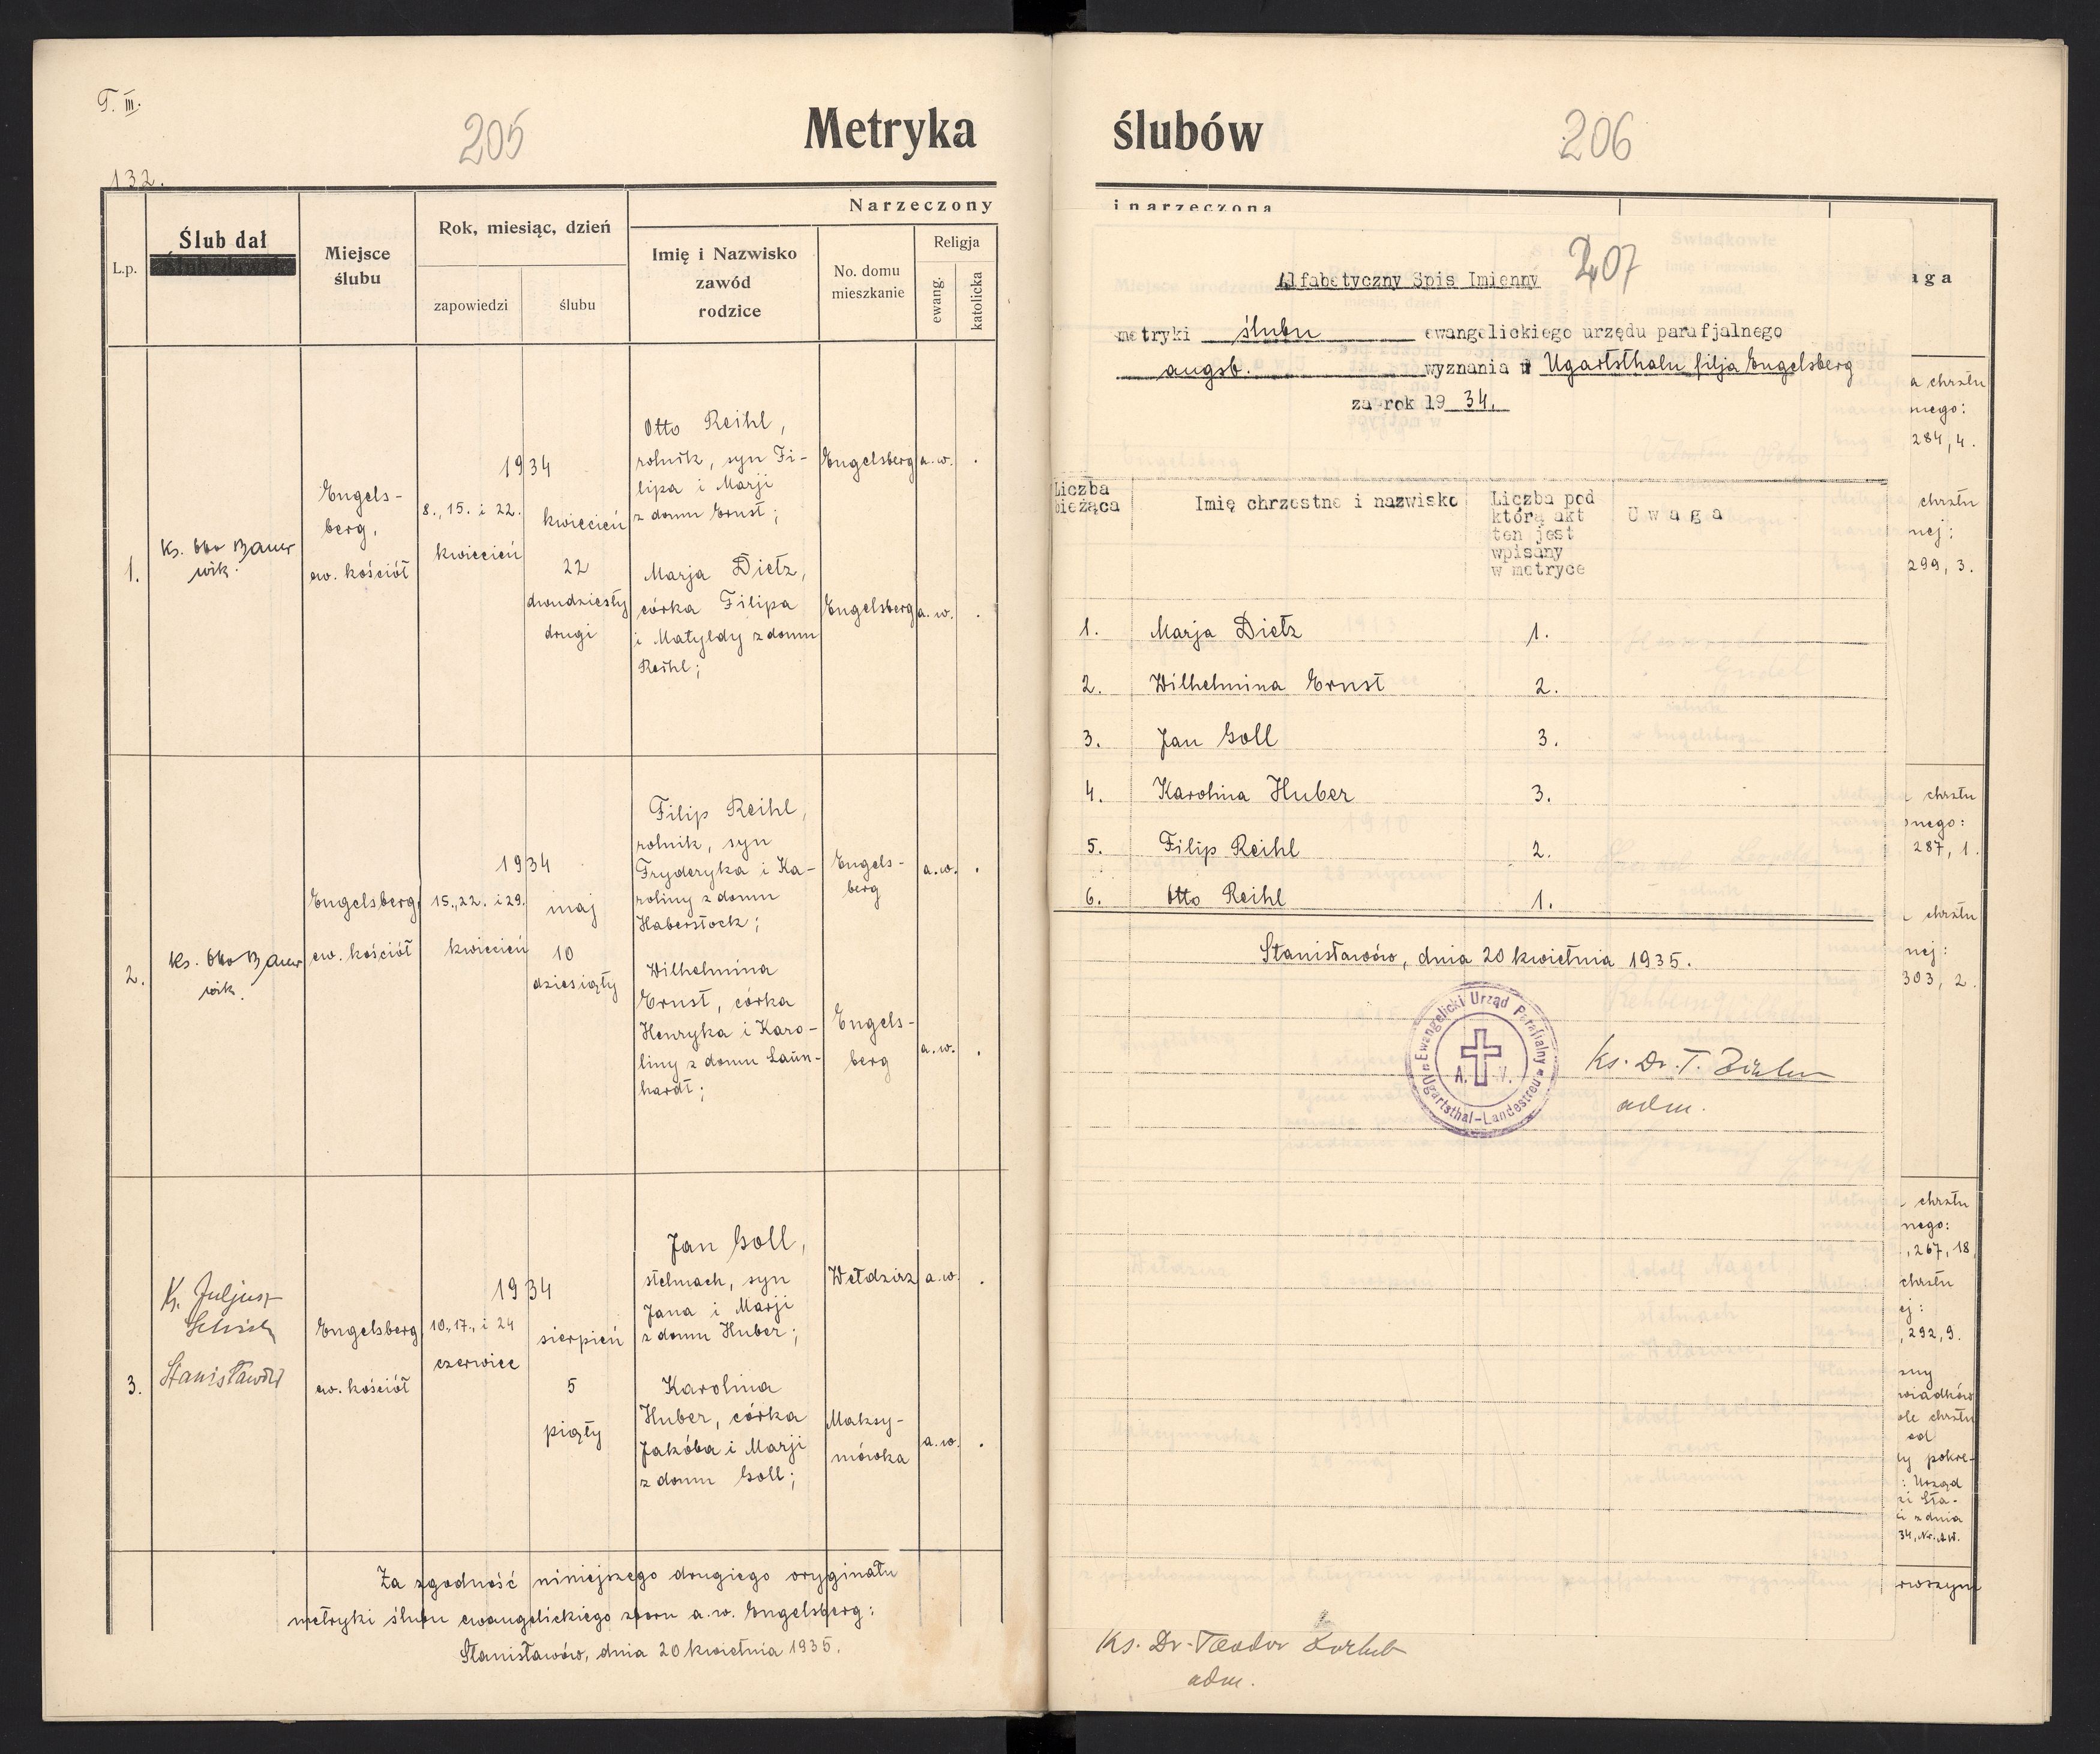 T. III.
205
Metryka
132.
L.p.
Ślub dał
Miejsce
ślubu
Rok, miesiąc, dzień
zapowiedzi
ślubu
Narzeczony
Imię i Nazwisko
zawód
rodzice
No. domu
mieszkanie
Religja
ewang.
katolicka
1.
Ks. Otto Bauer
wik.
Engels-
berg,
ew. kościół
1934
8., 15. i 22.
kwiecień
kwiecień
22
dwudziesty
drugi
Otto Reihl,
rolnik, syn Fi-
lipa i Marji
z domu Ernst;
Engelsberg
a.w.
Marja Dietz,
córka Filipa
i Matyldy z domu
Reihl;
Engelsberg
a.w.
2.
Ks. Otto Bauer
wik.
Engelsberg,
ew. kościół
1934
15., 22. i 29.
kwiecień
maj
10
dziesiąty
Filip Reihl,
rolnik, syn
Fryderyka i Ka-
roliny z domu
Haberstock;
Engels-
berg
a.w.
Wilhelmina
Ernst, córka
Henryka i Karo-
liny z domu Laun-
hardt;
Engels-
berg
a.w.
3.
Ks. Juljusz
Stanisławów
Engelsberg,
ew. kościół
1934
10., 17., i 24
czerwiec
sierpień
5
piąty
Jan Goll,
stelmach, syn
Jana i Marji
z domu Huber;
Wełdzirz
a.w.
Karolina
Huber, córka
Jakóba i Marji
z domu Goll;
Maksy-
mówka
a.w.
Za zgodność niniejszego drugiego oryginału
metryki ślubu ewangelickiego zboru a.w. Engelsberg:
Stanisławów, dnia 20 kwietnia 1935.
ślubów
206
i narzeczona
207
Alfabetyczny Spis Imienny
metryki ślubu ewangelickiego urzędu parafjalnego
augsb. wyznania w Ugartsthalu filja Engelsberg
za rok 19 34.
Liczba
bieżąca
Imię chrzestne i nazwisko
Liczba pod
którą akt
ten jest
wpisany
w metryce
Uwaga
1. Marja Dietz 1.
2. Wilhelmina Ernst 2.
3. Jan Goll 3.
4. Karolina Huber 3.
5. Filip Reihl 2.
6. Otto Reihl 1.
Stanisławów, dnia 20 kwietnia 1935.
Ewangelicki Urząd Parafialny
Ugartsthal-Landestreu
A. V.
Ks. Dr. T.
adm.
aga
a chrztu
nego:
284, 4.
chrztu
nej:
299, 3.
chrztu
onego:
287, 1.
chrztu
nej:
303, 2.
chrztu
nego:
, 267, 18
chrztu
ej:
, 292, 9.
zny
wiadków
ole chrztu
od
ty pokre-
: Urząd
ki Sta-
i z dnia
34, Nr.
rwszym
Ks. Dr. Teodor
adm.